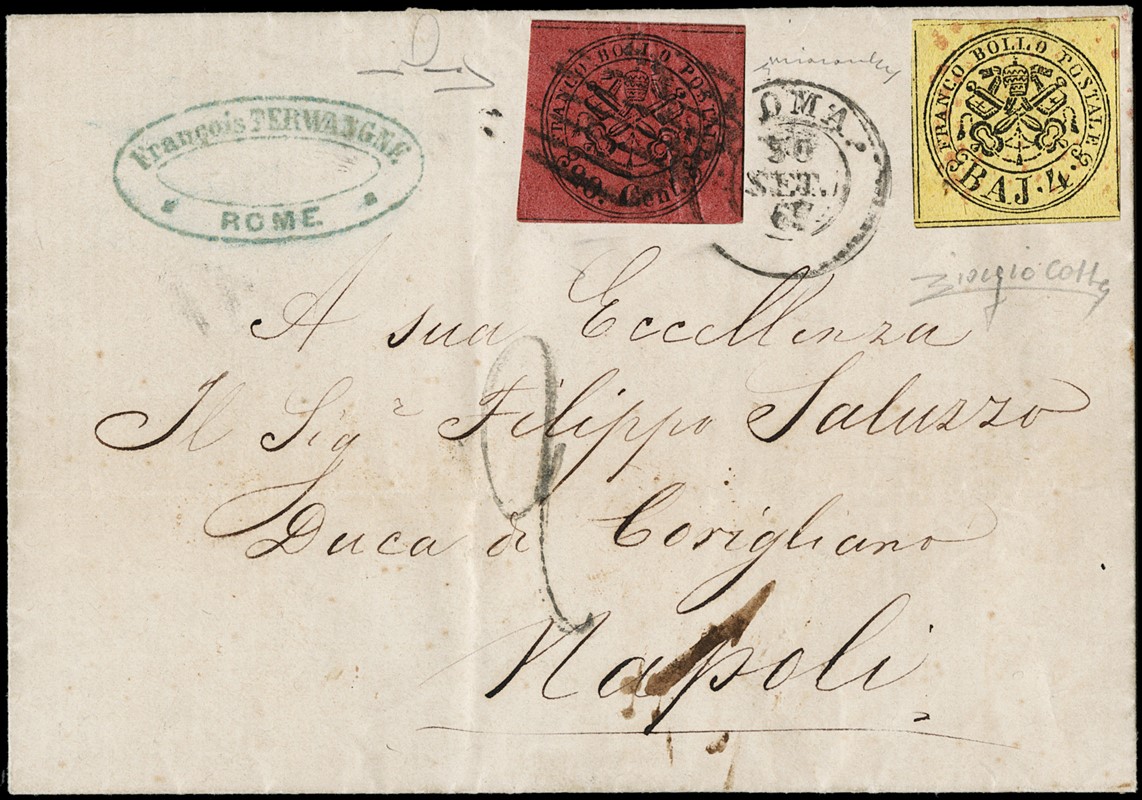 François TERWANGNE
ROME
FRANCO BOLLO POSTALE
20. Cent.
ROMA
30
SET.
67
FRANCO BOLLO POSTALE
BAJ. 4.
A sua Eccellenza
Il Sigr Filippo Saluzzo
Duca di Corigliano
Napoli